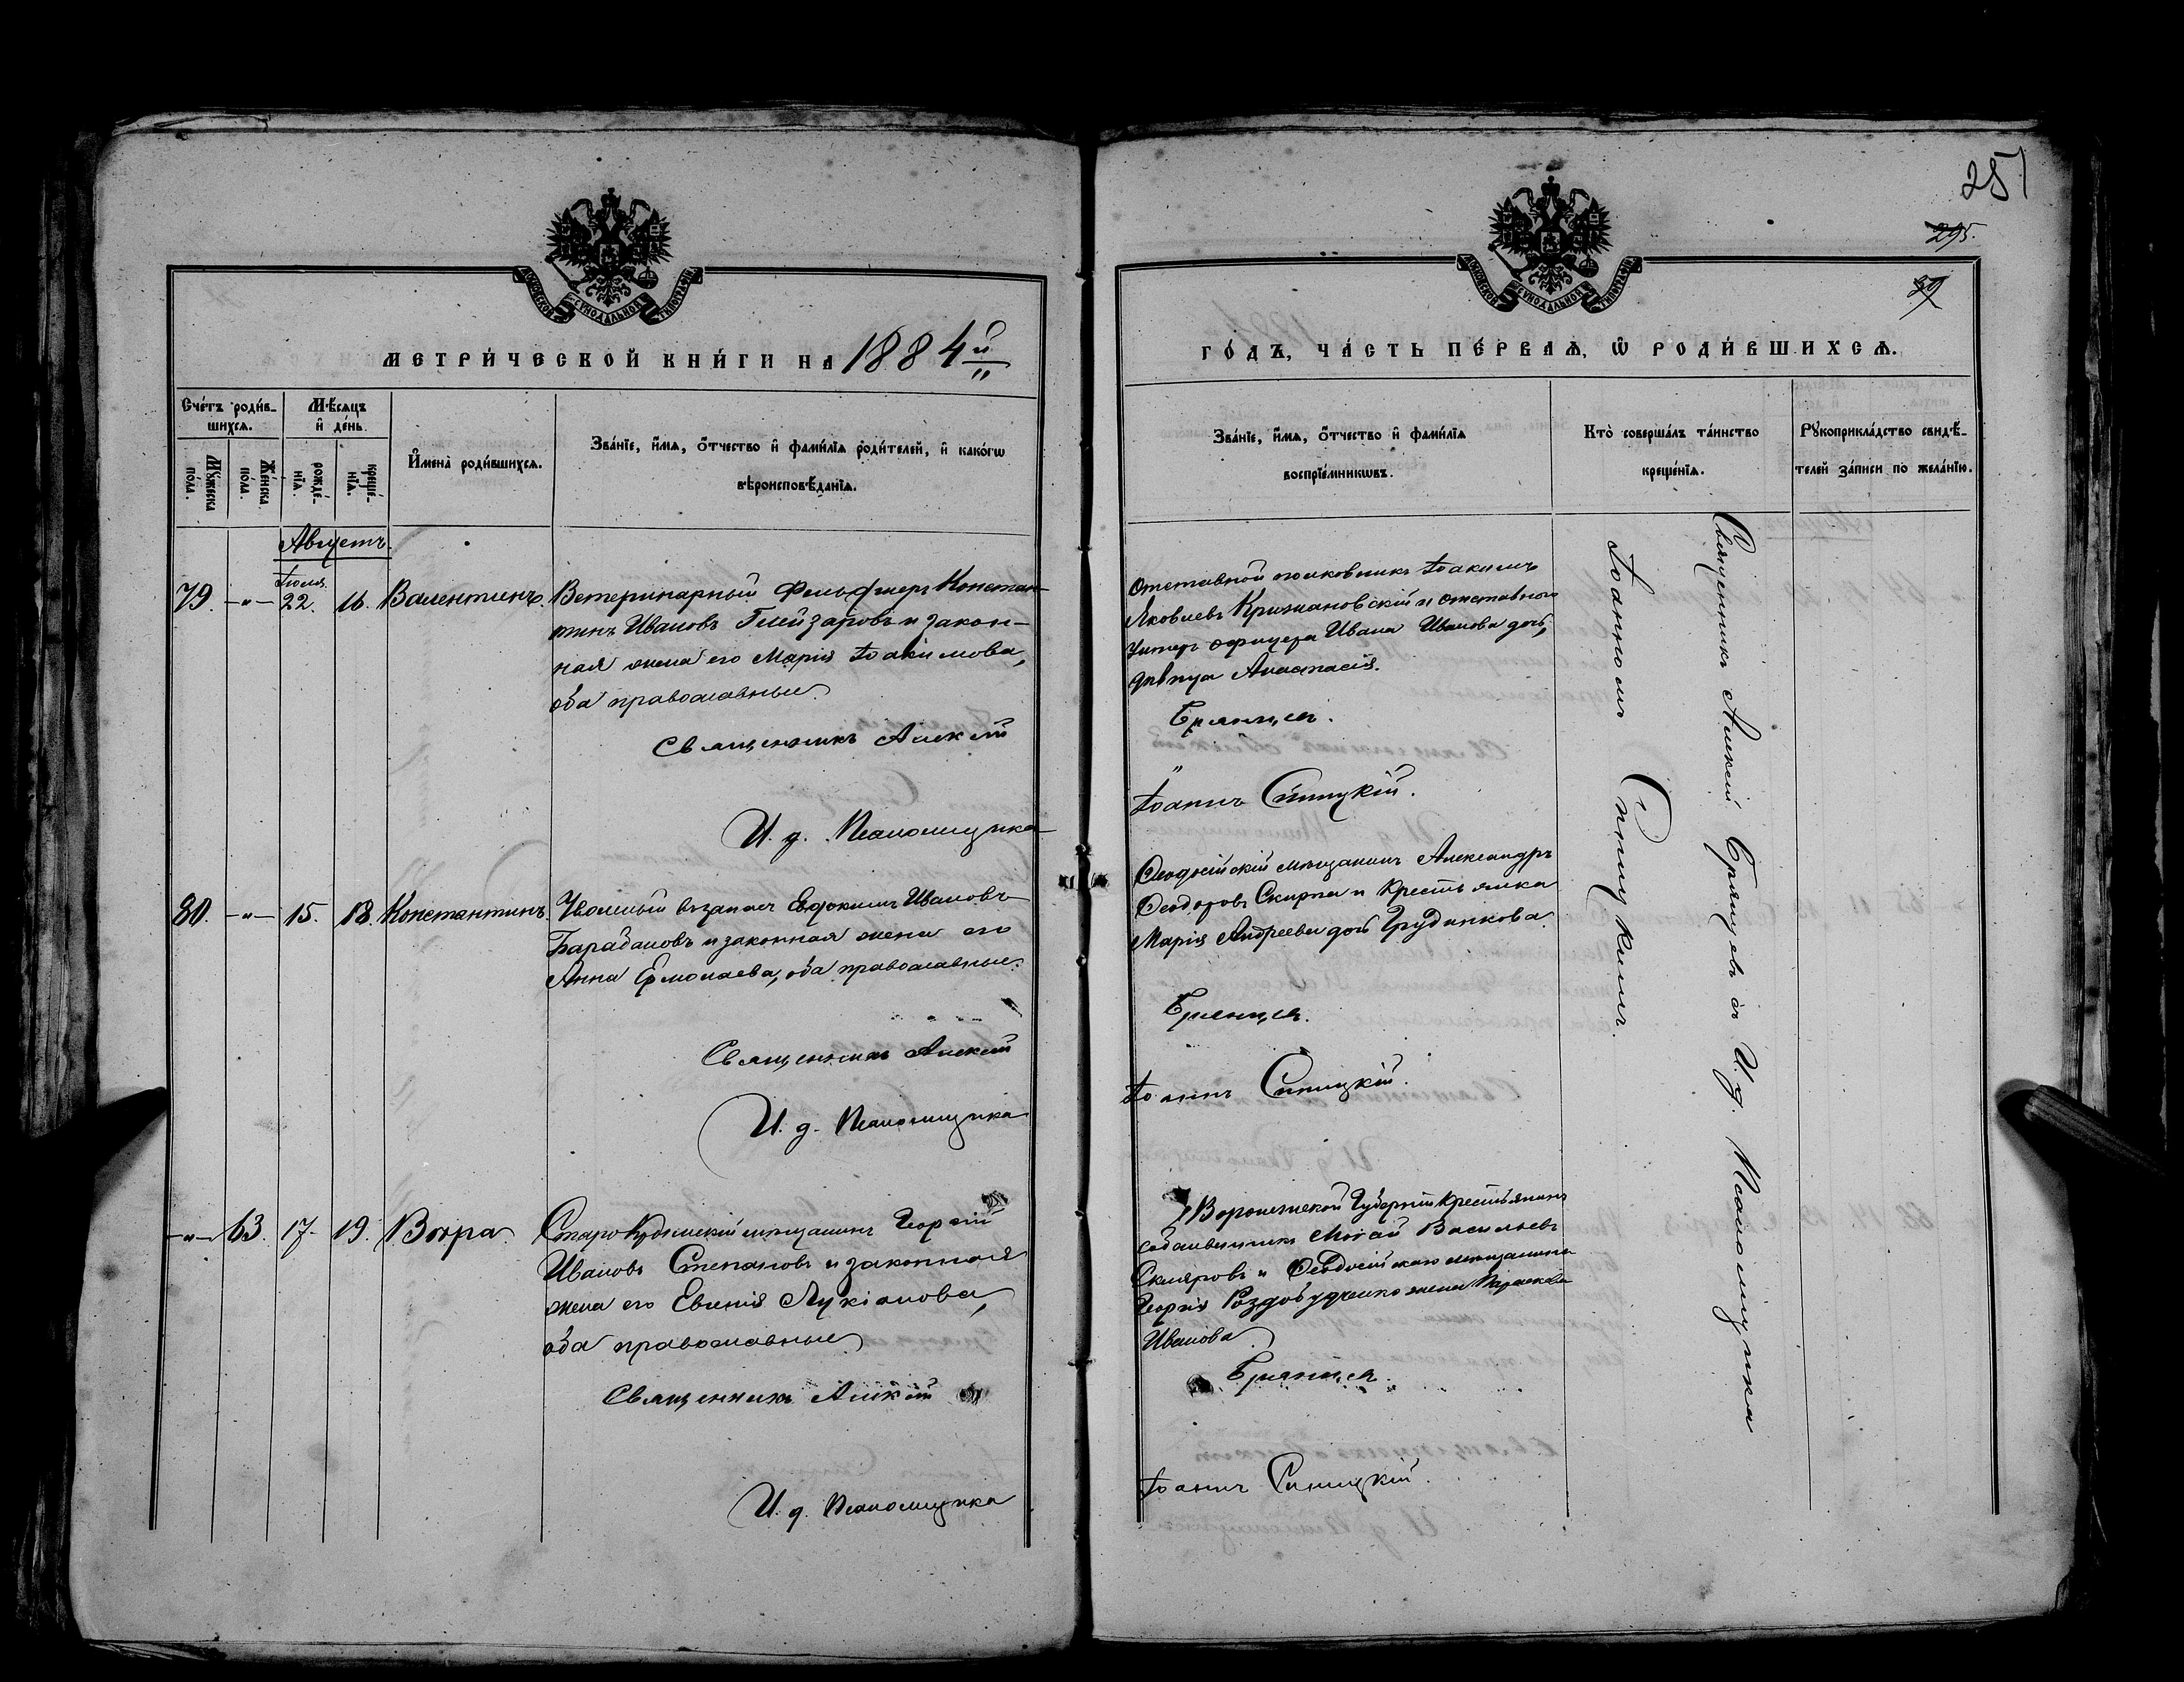 МОСКОВСКОЙ СѴНОДАЛЬНОЙ ТИПОГРАФІИ
МЕТРИ́ЧЕСКОЙ КНИ́ГИ НА 1884й
Сче́тъ роди́в-
шихсѧ.
Мѣ́сѧцъ
и҆ де́нь.
Мꙋ́жеска
по́ла.
Же́нска
по́ла.
рожде́-
нїѧ.
креще́-
нїѧ.
И҆мена̀ роди́вшихсѧ.
Зва́нїе, и҆́мѧ, ѻ҆́тчество и҆ фами́лїѧ роди́телей, и҆ како́гѡ
вѣроисповѣ́данїѧ.
Августъ.
Іюля
79. -"- 22. 16. Валентинъ. Ветеринарный Фельдшеръ Констан-
тинъ Ивановъ Глейзаровъ и закон-
ная жена его Марія Іоакимова,
оба православные
Священникъ Алексій
И. д. Псаломщика
80. -"- 15. 18. Константинъ. Уволенный въ запасъ Евдокимъ Ивановъ
Барабановъ и законная жена его
Анна Ермолаева, оба православные.
Священникъ Алексій
И. д. Псаломщика
-"- 63. 17. 19. Вѣра. Старокрымскій мѣщанинъ Георгій
Ивановъ Степановъ и законная
жена его Евгенія Лукіанова,
оба православные
Священникъ Алексій
И. д. Псаломщика
251
295.
39
МОСКОВСКОЙ СѴНОДАЛЬНОЙ ТИПОГРАФІИ
ГО́ДЪ, ЧА́СТЬ ПЕ́РВАѦ, Ѡ҆ РОДИ́ВШИХСѦ.
Зва́нїе, и҆́мѧ, ѻ҆́тчество и҆ фами́лїѧ
воспрїе́мникѡвъ.
Кто̀ соверша́лъ та́инство
креще́нїѧ.
Рꙋкоприкла́дство свидѣ́-
телей за́писи по жела́нїю.
Отставной полковникъ Іоакимъ
Яковлевъ Крижановскій и отставного
Унтеръ офицера Ивана Иванова дочь,
дѣвица Анастасія.
Брянцевъ.
Іоаннъ Синицкій.
Ѳеодосійскій мѣщанинъ Александръ
Ѳеодоровъ Скирпа и Крестьянка
Марія Андреева дочь Грудинкова.
Брянцевъ.
Іоаннъ Синицкій.
Воронежской Губерніи Крестьянинъ
Мойсей Васильевъ
Скляровъ и Ѳеодосійскаго мѣщанина
Георгія Роздобудченко жена Параскева
Иванова
Брянцевъ.
Іоаннъ Синицкій.
Священникъ Алексій Брянцевъ съ И. д. Псаломщика
Іоанномъ Синицкимъ.